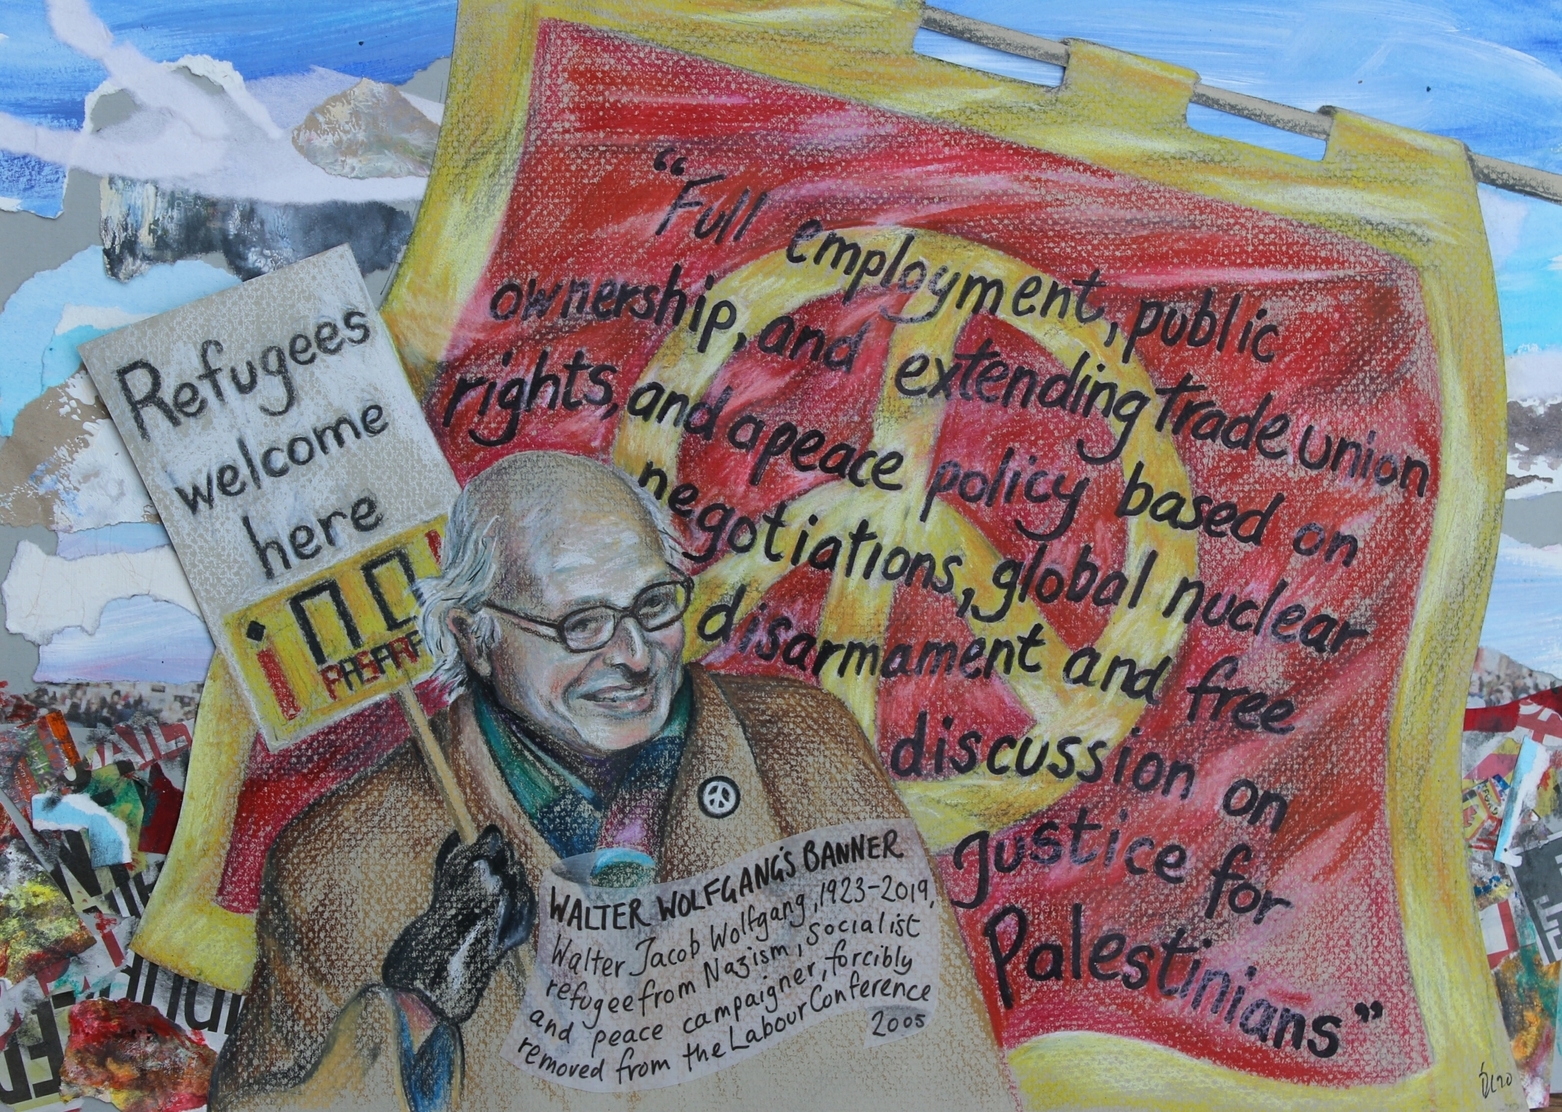 Refugees
welcome
here
"Full employment, public
ownership, and extending trade union
rights, and a peace policy based on
negotiations, global nuclear
disarmament and free
discussion on
Justice for
Palestinians"
WALTER WOLFGANG'S BANNER
Walter Jacob Wolfgang, 1923-2019,
refugee from Nazism, socialist
and peace campaigner, forcibly
removed from the Labour Conference
2005